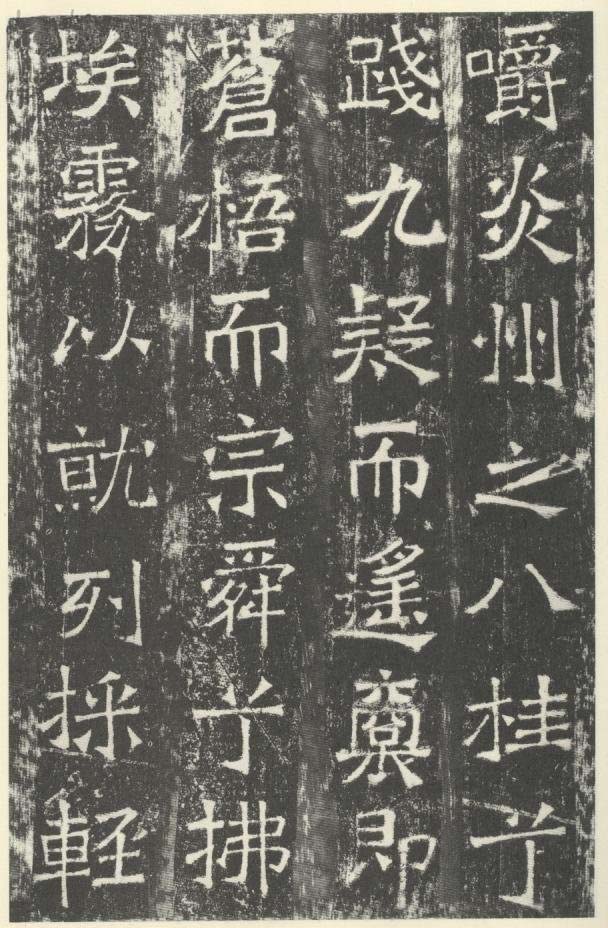 嚼炎州之八桂兮
踐九疑而遥即
蒼梧而宗舜兮拂
埃霧以就列採輕